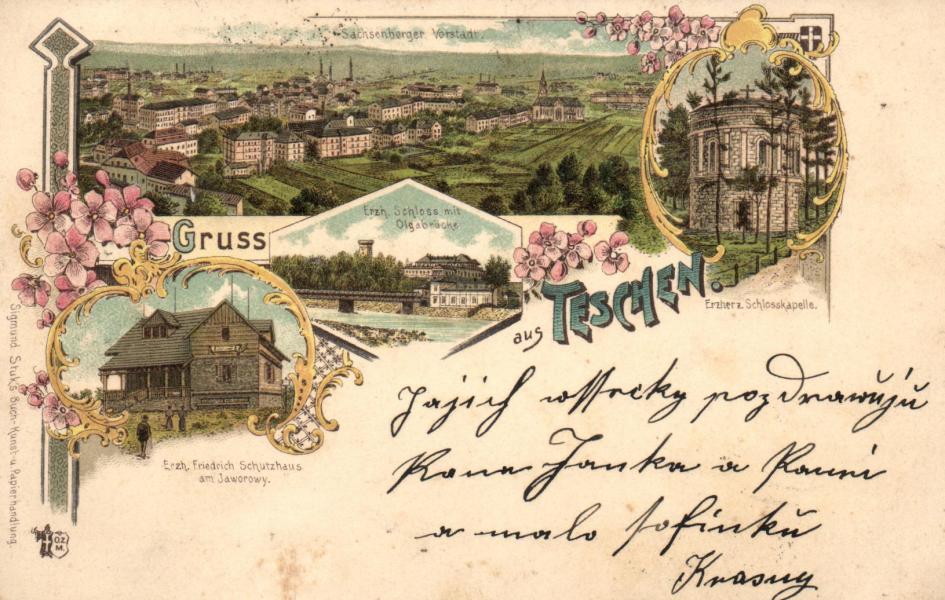 Sachsenberger Vorstadt.
Erzh. Schloss mit
Olgabrücke
Gruss
aus TESCHEN.
Erzherz. Schlosskapelle.
Erzh. Friedrich Schutzhaus
am Jaworowy.
Sigmund Stuks Buch-Kunst-u. Papierhandlung.
O.Z.
M.
Jajich wssecky pozdrawuju
Pana Janka a Panni
a malo sofinku
Krasny